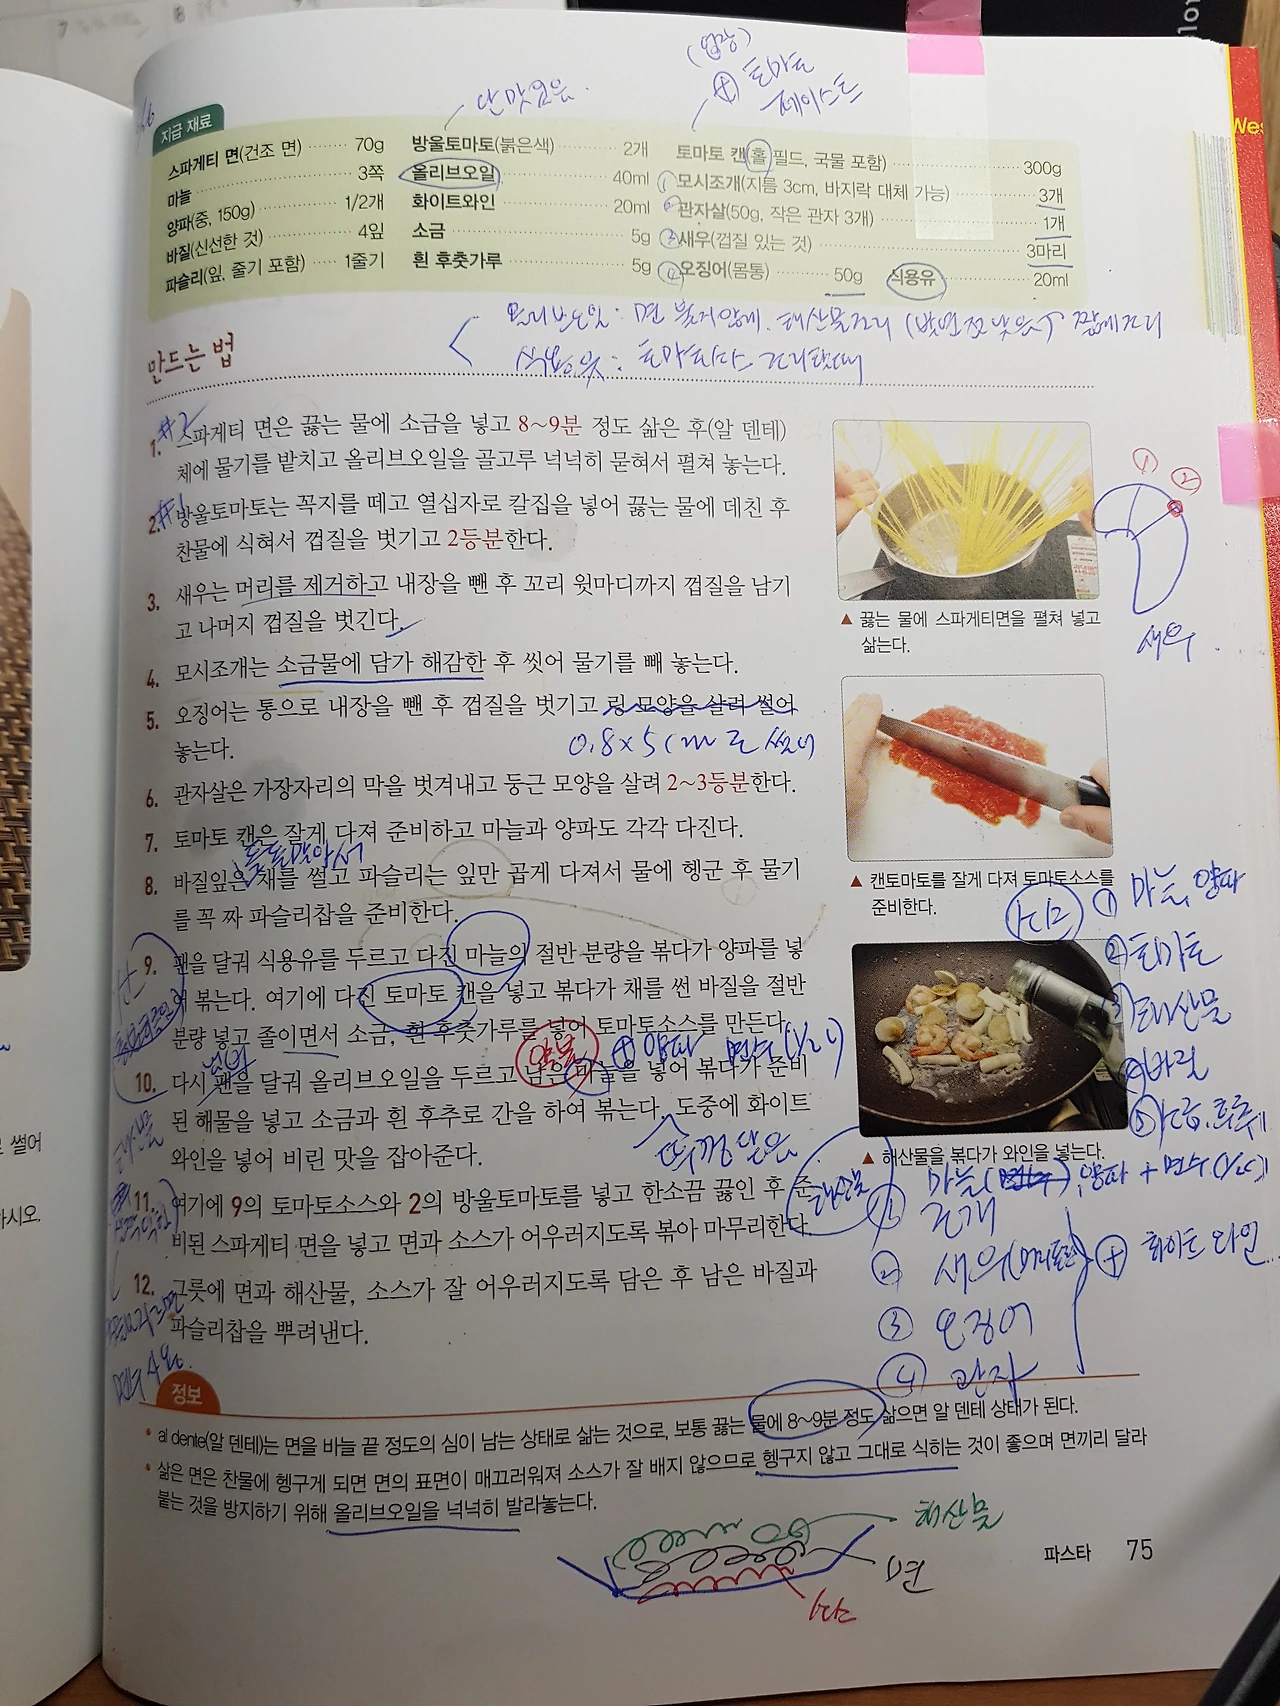 단맛있음
토마토
페이스트
지급 재료
스파게티 면(건조 면) ········ 70g
마늘 ········ 3쪽
양파(중, 150g) ········ 1/2개
바질(신선한 것) ········ 4잎
파슬리(잎, 줄기 포함) ····· 1줄기
방울토마토(붉은색) ········ 2개
올리브오일 ········ 40ml
화이트와인 ········ 20ml
소금 ········ 5g
흰 후춧가루 ········ 5g
토마토 캔(홀 필드, 국물 포함) ········ 300g
① 모시조개(지름 3cm, 바지락 대체 가능) ········ 3개
② 관자살(50g, 작은 관자 3개) ········ 1개
③ 새우(껍질 있는 것) ········ 3마리
④ 오징어(몸통) ········ 50g
식용유 ········ 20ml
올리브오일: 면 불지않게. 해산물조리
식용유: 토마토
만드는 법
#2
1. 스파게티 면은 끓는 물에 소금을 넣고 8~9분 정도 삶은 후(알 덴테)
체에 물기를 밭치고 올리브오일을 골고루 넉넉히 묻혀서 펼쳐 놓는다.
#1
2. 방울토마토는 꼭지를 떼고 열십자로 칼집을 넣어 끓는 물에 데친 후
찬물에 식혀서 껍질을 벗기고 2등분한다.
3. 새우는 머리를 제거하고 내장을 뺀 후 꼬리 윗마디까지 껍질을 남기
고 나머지 껍질을 벗긴다.
4. 모시조개는 소금물에 담가 해감한 후 씻어 물기를 빼 놓는다.
5. 오징어는 통으로 내장을 뺀 후 껍질을 벗기고 링 모양을 살려 썰어
놓는다.
0.8x5cm로 썰어
6. 관자살은 가장자리의 막을 벗겨내고 둥근 모양을 살려 2~3등분한다.
7. 토마토 캔은 잘게 다져 준비하고 마늘과 양파도 각각 다진다.
돌돌말아서
8. 바질잎은 채를 썰고 파슬리는 잎만 곱게 다져서 물에 헹군 후 물기
를 꼭 짜 파슬리찹을 준비한다.
9. 팬을 달궈 식용유를 두르고 다진 마늘의 절반 분량을 볶다가 양파를 넣
어 볶는다. 여기에 다진 토마토 캔을 넣고 볶다가 채를 썬 바질을 절반
분량 넣고 졸이면서 소금, 흰 후춧가루를 넣어 토마토소스를 만든다.
+ 양파 면수(1/2c)
10. 다시 팬을 달궈 올리브오일을 두르고 남은 마늘을 넣어 볶다가 준비
된 해물을 넣고 소금과 흰 후추로 간을 하여 볶는다. 도중에 화이트
와인을 넣어 비린 맛을 잡아준다.
뚜껑 닫음
11. 여기에 9의 토마토소스와 2의 방울토마토를 넣고 한소끔 끓인 후 준
비된 스파게티 면을 넣고 면과 소스가 어우러지도록 볶아 마무리한다.
12. 그릇에 면과 해산물, 소스가 잘 어우러지도록 담은 후 남은 바질과
파슬리찹을 뿌려낸다.
① ②
새우
▲ 끓는 물에 스파게티면을 펼쳐 넣고
삶는다.
▲ 캔토마토를 잘게 다져 토마토소스를
준비한다.
▲ 해산물을 볶다가 와인을 넣는다.
① 마늘, 양파
② 토마토
③ 해산물
④ 바질
⑤ 소금.후추
해산물
① 마늘 양파 + 면수
조개
② 새우
③ 오징어
④ 관자
+ 화이트 와인
정보
• al dente(알 덴테)는 면을 바늘 끝 정도의 심이 남는 상태로 삶는 것으로, 보통 끓는 물에 8~9분 정도 삶으면 알 덴테 상태가 된다.
• 삶은 면은 찬물에 헹구게 되면 면의 표면이 매끄러워져 소스가 잘 배지 않으므로 헹구지 않고 그대로 식히는 것이 좋으며 면끼리 달라
붙는 것을 방지하기 위해 올리브오일을 넉넉히 발라놓는다.
해산물
면
소스
파스타 75
썰어
하시오.